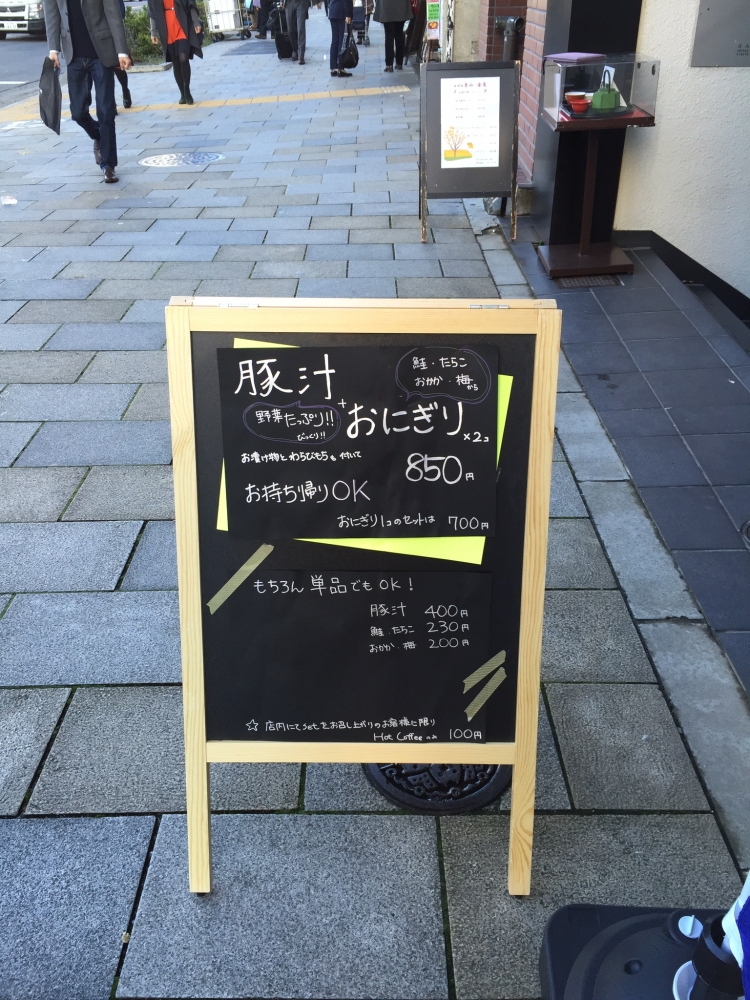 豚汁
鮭・たらこ
おかか・梅から
野菜たっぷり!!
びっくり!!
+おにぎり×2コ
お漬け物とわらびもちも付いて
850円
お持ち帰りOK
おにぎり1コのセットは 700円
もちろん 単品でも OK!
豚汁 400円
鮭・たらこ 230円
おかか・梅 200円
☆店内にてsetをお召し上がりのお客様に限り
Hot Coffee のみ 100円